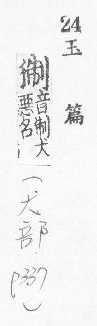 24 玉篇
猘
音制犬
惡名
(犬部